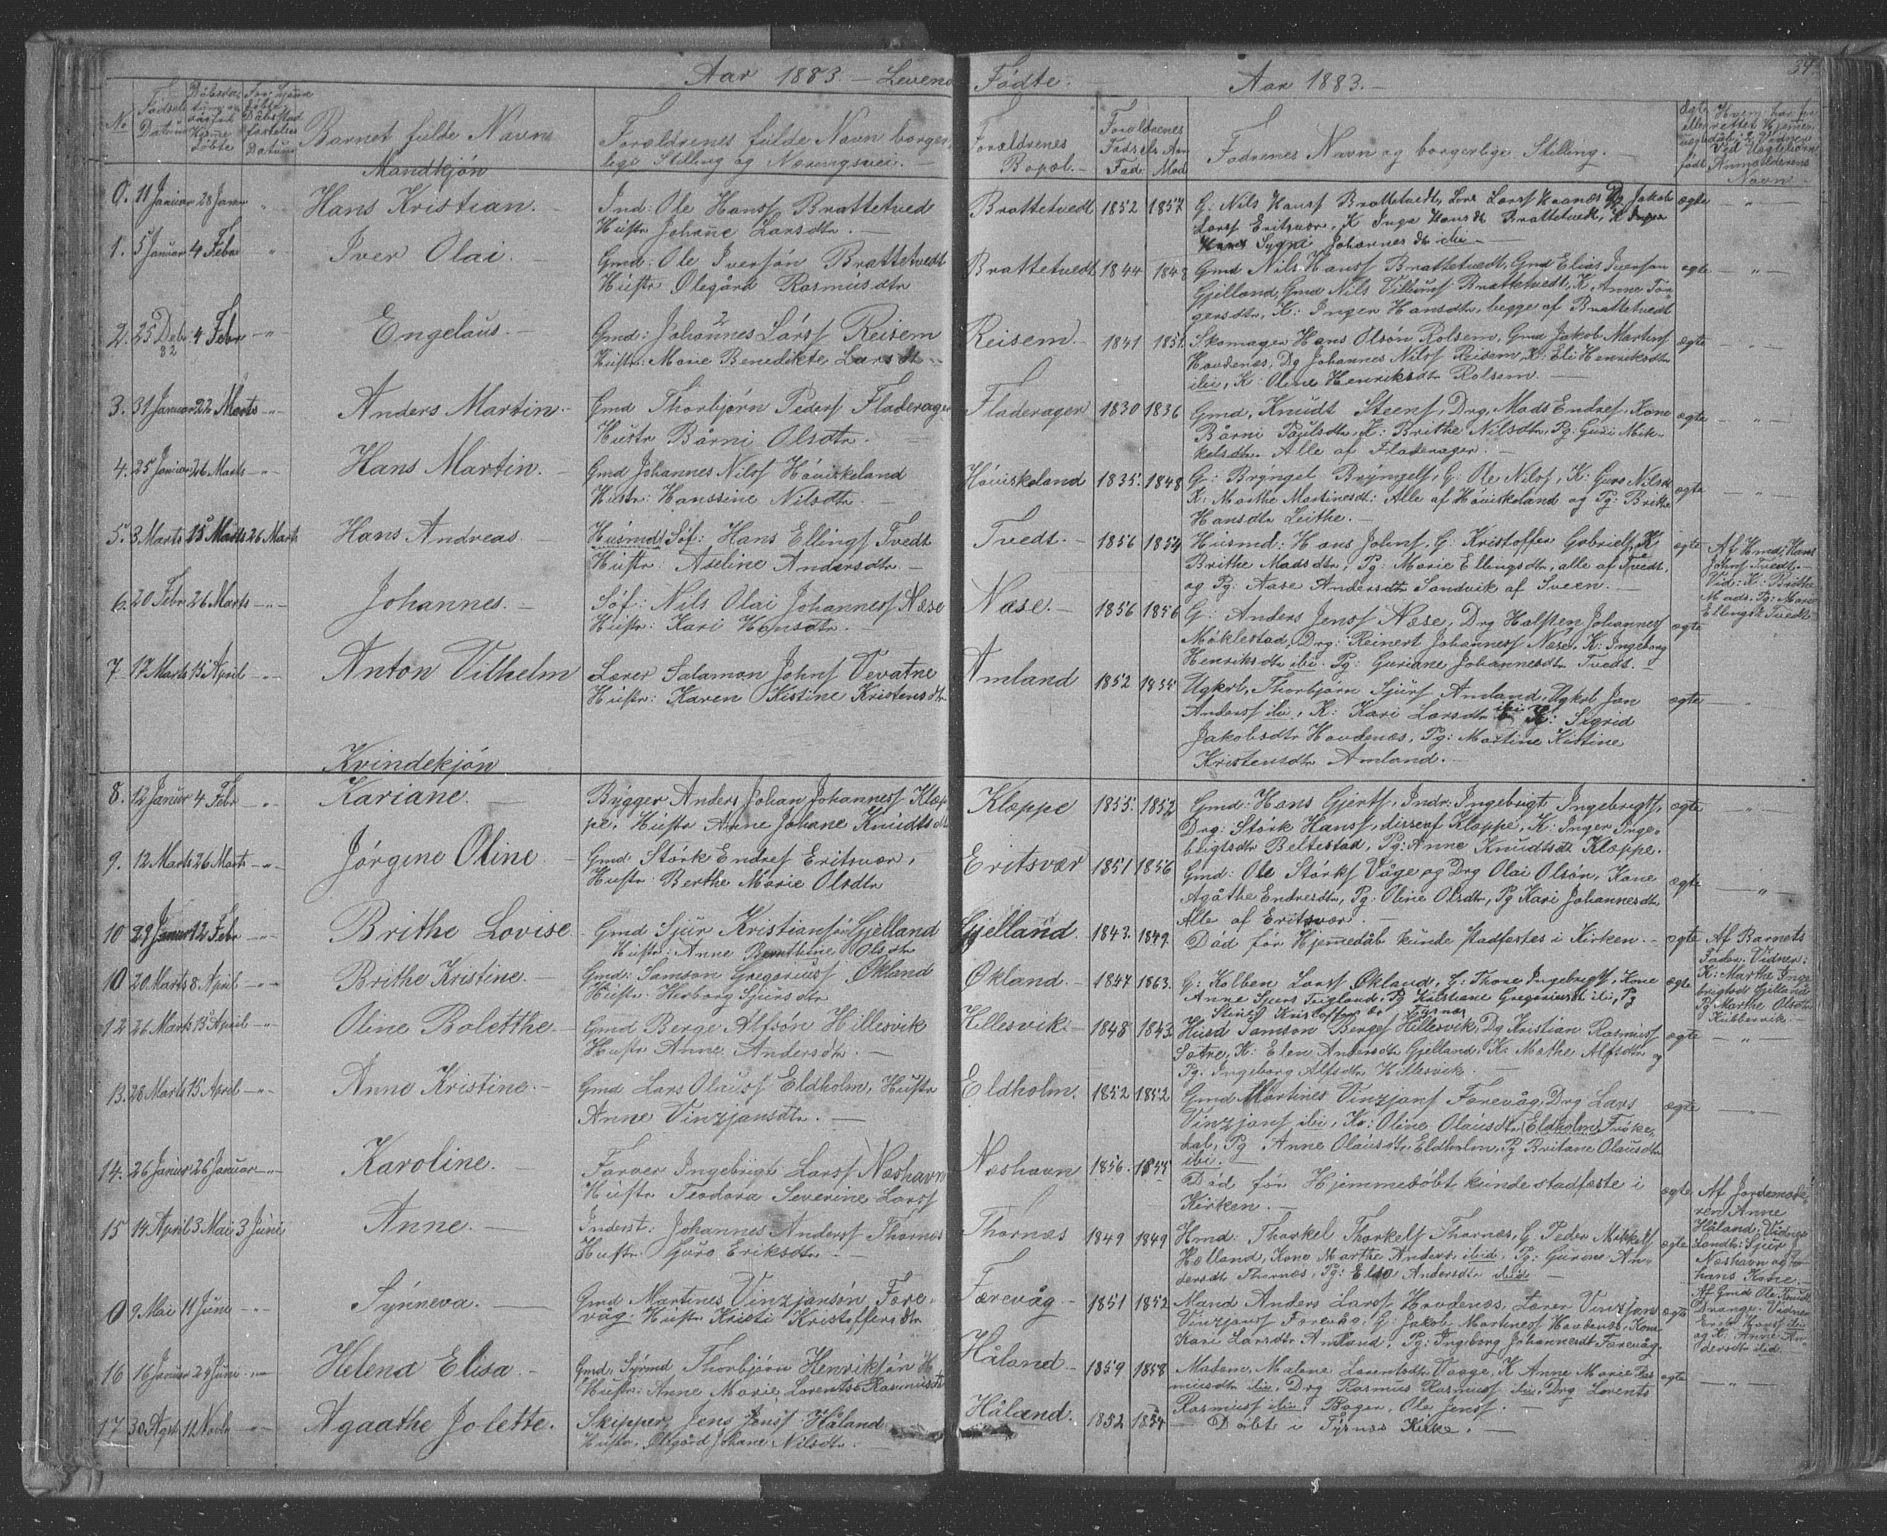 Aar 1883. — Levend Fødte. Aar 1883. —
34.
No Fødsels Datum
Barnets fulde Navn
Forældrenes fulde Navn borger-
lige Stilling og Næringsvei. —
Forældrenes
Bopæl. —
Forældrenes
Fødsels Aar
Fad. Mod
Fadrenes Navn og borgerlige Stilling. —
Mandkjøn
0. 11 Januar 28 Januar " Hans Kristian. —
Ind: Ole Hansf Brattetved
Hustr Johane Larsdtr. —
Brattetvedt 1852 1857
G: Nils Hansf Brattetvedt, Lars Larsf Jakob
Larsf Eritsvær, K Inga Hansdt Brattetvedt,
Sygni Johannesdt ibi —
ægte — " —
1. 5 Januar 4 Febr " Iver Olai. —
Gmd: Ole Iversøn Brattetvedt
Hustr Olegård Rasmusdtr
Brattetvedt 1844 1848
Gmd Nils Hansf Brattetvedt, Gmd Elias Iversøn
Gjelland, Gmd Nils Villumsf Brattetvedt, K Anne Tor-
gersdtr, K: Inger Hansdtr, begge af Brattetvedt
ægte — " —
2. 25 Debr 82 4 Febr — " — Engelaus. —
Gmd: Johannes Larsf Reisem
Hustr: Marie Benedikte Larsdt —
Reisem. — 1841 1851
Skomager Hans Olsøn Rolsem, Gmd Jakob Martinsf
Hovdenæs, Dg Johannes Nilsf Reisem, K: Eli Henriksdtr
ibi, K: Oline Henriksdtr Rolsem. —
ægte — " —
3. 31 Januar 22 Marts — " — Anders Martin. —
Gmd Thorbjørn Pedersf Fladerager
Hustr Bårni Olsdtr. —
Fladerager 1830 1836
Gmd, Knudt Steensf, Drg, Mads Endresf, Kone
Bårni Paulsdtr, K: Brithe Nilsdtr, Pg: Guri Mik-
kelsdtr. Alle af Fladerager. —
ægte "
4. 25 Januar 26 Marts — " — Hans Martin. —
Gmd Johannes Nilsf Høviskeland
Hustr: Hanssine Nilsdtr. —
Høviskeland 1835. 1848
G: Bryngel Bryngelsf, G: Ole Nilsf, K: Guro Nilsdt
K: Marthe Martinesdt: Alle af Høviskeland og Pg: Brithe
Hansdtr Leithe. —
ægte — " —
5. 3 Marts 15 Marts 26 Marts Hans Andreas. —
Husmd Søf: Hans Ellingsf Tvedt
Hustr: Aseline Andersdtr —
Tvedt. — 1856 1854
Husmd: Hans Johnsf, G: Kristoffer Gabrielsf, K
Brithe Madsdtr, Pg: Marie Ellingsdtr, alle af Tvedt,
og Pg: Aase Andersdtr Sandvik af Sveen. —
ægte
Af Hmd: Hans
Johnsf Tvedt. —
Vid: K: Brithe
Mads. Pg: Marie
Ellingsdt Tvedt.
6. 20 Febr 26 Marts — " — Johannes. —
Søf: Nils Olai Johannesf Næse
Hustr: Kari Hansdtr. —
Næse. — 1856 1856
G: Anders Jensf Næse, Drg Halsten Johannesf
Møklestad, Drg: Reinert Johannesf Næse, K: Ingeborg
Henriksdtr ibi. Pg: Guriane Johannesdtr Tvedt. —
ægte
7 17 Marts 15 April — " — Anton Vilhelm
Lærer Salamon Johnsf Vevatne
Hustr: Karen Kistine Kristensdtr
Amland 1852 1855
Ugkrl, Thorbjørn Sjursf Amland, Ugkrl Jan
Andersf ibi, K: Kari Larsdtr ibi K: Sigrid
Jakobsdtr Hovdenæs, Pg: Martine Kistine
Kristensdtr Amland. —
ægte
Kvindekjøn
8. 12 Januar 4 Febr — " — Kariane. —
Bygger Anders Johan Johannesf Klæp-
pe, Hustr Anne Johane Knudtsdtr
Kloppe 1855. 1852
Gmd: Hans Gjertsf, Indr: Ingebrigt Ingebrigtsf,
Drg: Størk Hansf, disseaf Kloppe, K: Inger Inge-
brigtsdtr Beltestad, Pg: Anne Knudtsdt Kloppe.
ægte — " —
9. 12 Marts 26 Marts — " — Jørgine Oline —
Gmd Størk Endresf Eritsvær,
Hustr: Berthe Marie Olsdtr
Eritsvær 1851 1856
Gmd: Ole Størksf Våge og Drg Olai Olsøn, Kone
Agåthe Endresdtr, Pg: Oline Olsdtr, Pg Kari Johannesdtr
Alle af Eritsvær. —
ægte — " —
10 29 Januar 12 Febr — " — Brithe Lovise —
Gmd Sjur Kristiansøn Gjelland
Hustr: Anne Olsdtr
Gjelland. 1843. 1849.
Død før Hjemedåb kunde stadfestes i Kirken. —
ægte
Af Barnets
Fader. Vidner:
K: Marthe Inge-
brigtsdt Gjelland
Pg Marthe Olsdtr
Kubbervik. —
0 20 Marts 8 April — " — Brithe Kristine. —
Gmd: Samson Gregoriusf Økland
Hustr: Herborg Sjursdtr
Økland. 1847 1863.
G: Kolben Larsf Økland, G: Thore Ingebrigtsf, Kone
Anne Sjurs Tvigland, Pg Kristiane Gregoriusdt ibi, Pg
Stine Kristoffersdtr Tysnes
ægte
12 26 Marts 15 April — " — Oline Boletthe —
Gmd Berge Alfsøn Hillesvik
Hustr Anne Andersdtr. —
Hillesvik. — 1848 1843.
Husd Samson Bergesf Hillesvik, Dg Kristian Rasmusf
Sætre, K: Elen Andersdtr Gjelland, K: Mathe Alfsdtr og
Pg: Ingeborg Alfsdtr Hillesvik. —
ægte — " —
13. 28 Marts 15 April — " — Anne Kristine. —
Gmd Lars Olausf Eldholm, Hustr
Anne Vinzjansdtr. —
Eldholm. 1852 1852
Gmd Martines Vinzjansf Færevåg, Drg Lars
Vinzjansf ibi, K: Oline Olausdtr Eldholm,
Pg Anne Olausdtr Eldholm, Pg Britane Olausdtr
ibi. —
ægte — " —
14. 26 Januar 26 Januar — " — Karoline. —
Farver Ingebrigt Larsf Næshavn
Hustr Teodora Severine Larsf
Næshavn 1856. 1855
Død før Hjemmedøbt kunde stadfæste i
Kirken. —
ægte
Af Jordemode-
ren Anne
Håland. Vidner
Landh: Sjur
Næshavn og Jo-
hans Kone. —
15 14 April 3 Mai 3 Juni Anne. —
Inderst: Johannes Andersf Thornæs
Hustr Guro Eriksdtr. —
Thornæs 1849 1849
Hmd: Thorkel Thorkelsf Thornæs, G Peder Mikkelsf
Hælland, Kone Marthe Anders. ibid, Pg: Gurine An-
dersdtr Thornæs, Pg: Else Andersdtr ibid —
ægte
Af Gmd Ole Knudt
Drange. Vidner
Erik Hansf ibi
og K: Anne An-
dersdtr ibid.
0 9 Mai 11 Juni — " — Synneva. —
Gmd Martines Vinzjansøn Fære-
våg. Hustr Kristi Kristoffersdtr
Færevåg — 1851 1852
Mand Anders Larsf Hovdenæs, Lærer Vinzjans
Vinzjansf Færevåg, G: Jakob Martinesf Hovdenæs, Kone
Kari Larsdtr Amland, Pg: Ingborg Johannesdt Færevåg.
ægte
16 16 Januar 24 Juni — " — Helena Elisa. —
Gmd, Sømd Thorbjørn Henriksøn H
Hustr: Anne Marie Lorents Rasmusdt
Håland — 1859 1858
Madam, Malene Lorentsdtr Vaage, K Anne Marie Ras-
musdtr ibi, Drg Rasmus Rasmusf ibi, Drg Lorents
Rasmusf ibi, Bager, Ole Jensf. —
ægte — " —
17 30 Agst 11 Novbr — " — Agaathe Jolette.
Skipper, Jens Jensf Håland
Hustr, Olegård Johane Nilsdtr. —
Håland. 1852 1854
— Døbt i Tysnæs Kirke. —